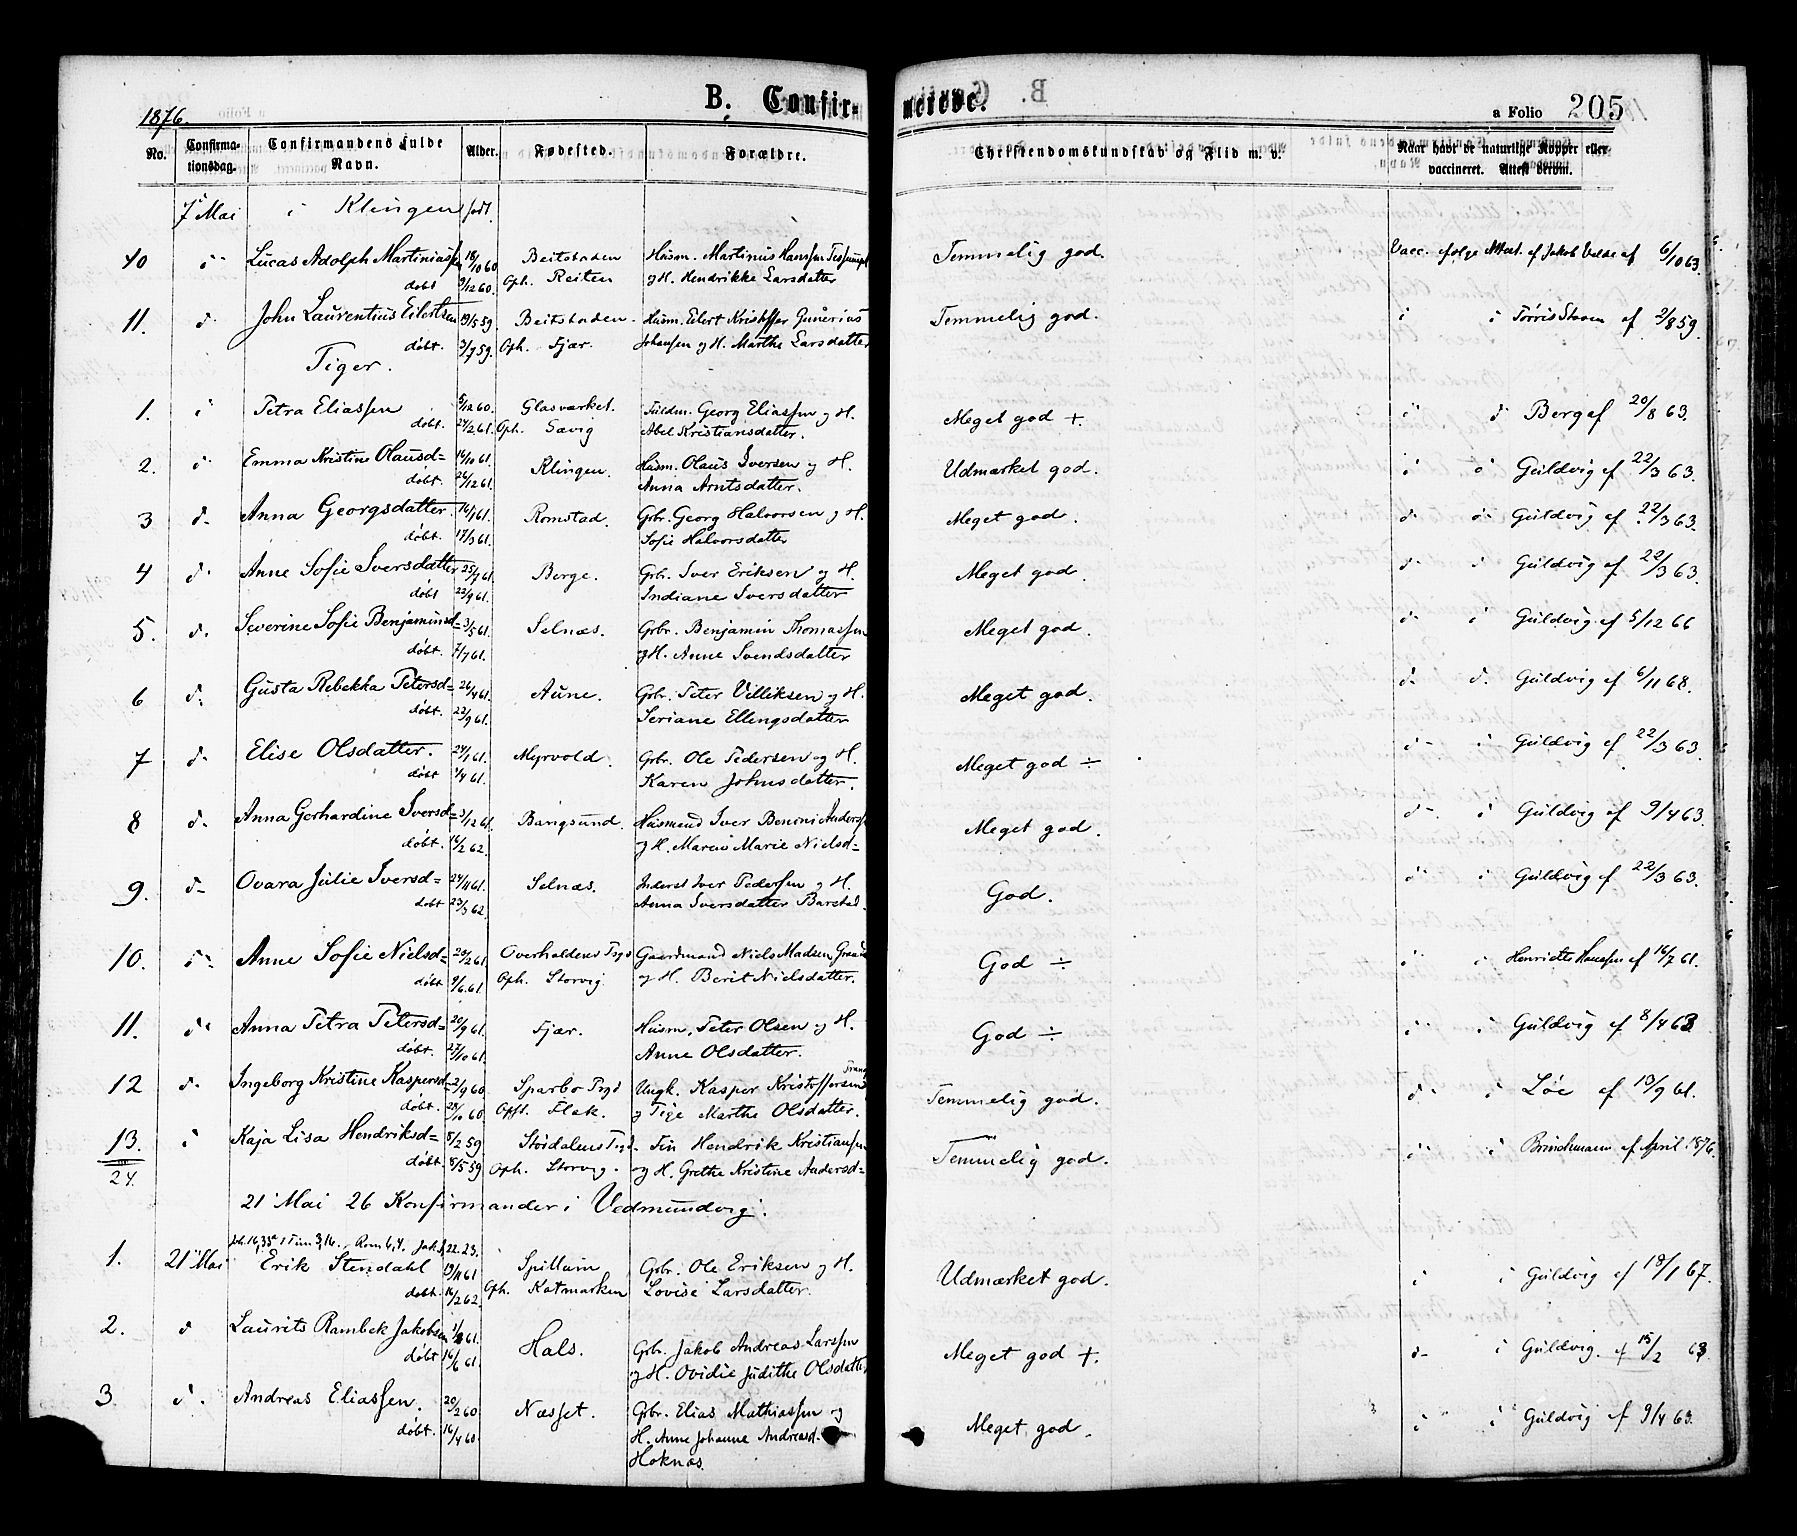 1876.
B. Confirmerede.
a Folio 205
No. Confirmationsdag. Confirmandens fulde Navn. Alder. Fødested. Forældre. Christendomskundskab og Flid m. v. Naar havt de naturlige Kopper eller vaccineret. Attest derom.
7 Mai i Klingen født.
10 Lucas Adolph Martiniassen 18/10 60 Beitstaden Husm. Martinus Hanssen Temmelig god. Vacc. efølge Attest. af Jakob Velde af 6/10 63.
døbt 9/12 60. Oph. Reiten og H. Hendrikke Larsdatter
11. d. John Laurentius Eilertsen 19/5 59. Beitstaden. Husm. Eilert Kristoffer Gunerius Temmelig god. af 2/8 59.
døbt. 3/7 59. Oph. Fjær. Johansen og H. Marthe Larsdatter
Tiger.
1. Petra Eliassen 5/12 60. Glasværket. Fuldm. Georg Eliassen og H. Meget god +. Berg af 20/8 63.
døbt. 24/2 61. Oph. Sævig Abel Kristiansdatter.
2. Emma Kristine Olausd= 14/10 61. Klingen. Husm. Olaus Iversen og H. Udmærket god. Guldvig af 22/3 63.
døbt. 26/12 61. Anna Arntsdatter.
3 d. Anna Georgsdatter. 16/1 61. Romstad. Grbr. Georg Halvorsen og H. Meget god. Guldvig af 22/3 63.
døbt. 17/3 61. Sofie Halvorsdatter
4 d. Anne Sofie Iversdatter 25/7 61. Berge. Grbr. Iver Eriksen og H. Meget god. Guldvig af 22/3 63.
døbt 22/9 61. Indiane Iversdatter
5. d. Severine Sofie Benjaminsd= 3/5 61. Selnæs. Grbr. Benjamin Thomassen Meget god. Guldvig. af 5/12 66
døbt. 7/7 61. og H. Anne Svendsdatter
6 d. Gusta Rebekka Petersd= 26/4 61. Aune. Grbr. Peter Villiksen og H. Meget god. Guldvig af 6/11 68.
døbt. 22/9 61. Seriane Ellingsdatter
7 d. Elise Olsdatter. 24/1 61. Myrvold. Grbr. Ole Pedersen og H. Meget god ÷ Guldvig af 22/3 63.
døbt 1/4 61. Karen Johnsdatter.
8 d. Anna Gerhardine Iversd= 3/12 61. Bangsund. Husmand Iver Benoni Anders Meget god. Guldvig af 9/4 63.
døbt. 16/2 62. og H. Maren Marie Nielsd=
9. d. Ovara Julie Iversd= 24/11 61. Selnæs. Inderst Iver Pedersen og H. God. Guldvig af 22/3 63.
døbt 23/3 62. Anna Iversdatter Barstad.
10. Anne Sofie Nielsd= 23/2 61. Overhaldens Prgd Gaardmand Niels Madsen God ÷ Henriette Hanssen af 16/7 61.
døbt 9/6 61. Oph. Storvig og H. Berit Nielsdatter.
11. d. Anna Petra Petersd= 20/9 61. Fjær. Husm. Peter Olsen og H. God ÷ Guldvig af 8/4 63
døbt. 27/10 61. Anne Olsdatter.
12 d. Ingeborg Kristine Kaspersd= 2/9 60 Sparbo Prgd Ungk. Kasper Kristoffersen Temmelig god. Løe af 13/9 61.
døbt. 28/10 60. Opft. Flak. og Pige Marthe Olsdatter.
13. Kaja Lisa Hendriksd= 8/2 59 Stördalens Prgd. Hendrik Kristiansen Temmelig god. Brinchmann af April 1876.
døbt. 8/5 59. Oph. Storvig. og H. Grethe Kristine Andersd=
24.
21 Mai 26 Konfirmander i Vedmundvig.
1 Tim 3,16. Rom 6,4. Jak. 1, 22.23.
1. 21 Mai Erik Stendahl 19/11 61 Spillum Grbr. Ole Eriksen og H. Udmærket god. Guldvig af 18/1 67.
døbt. 16/2 62. Oph. Katmarken Lovise Larsdatter.
2. d Laurits Rambek Jakobsen 61. Hals. Grbr. Jakob Andreas Larssen Meget god +. Guldvig. af 15/2 63
døbt 16/6 61. og H. Ovidie Judithe Olsdatter
3. d. Andreas Eliassen. 20/2 60 Næsset. Grbr. Elias Mathiassen og Meget god. Guldvig af 9/4 63.
døbt. 16/4 60. H. Anne Johanne Andreasd.
Hoknæs.